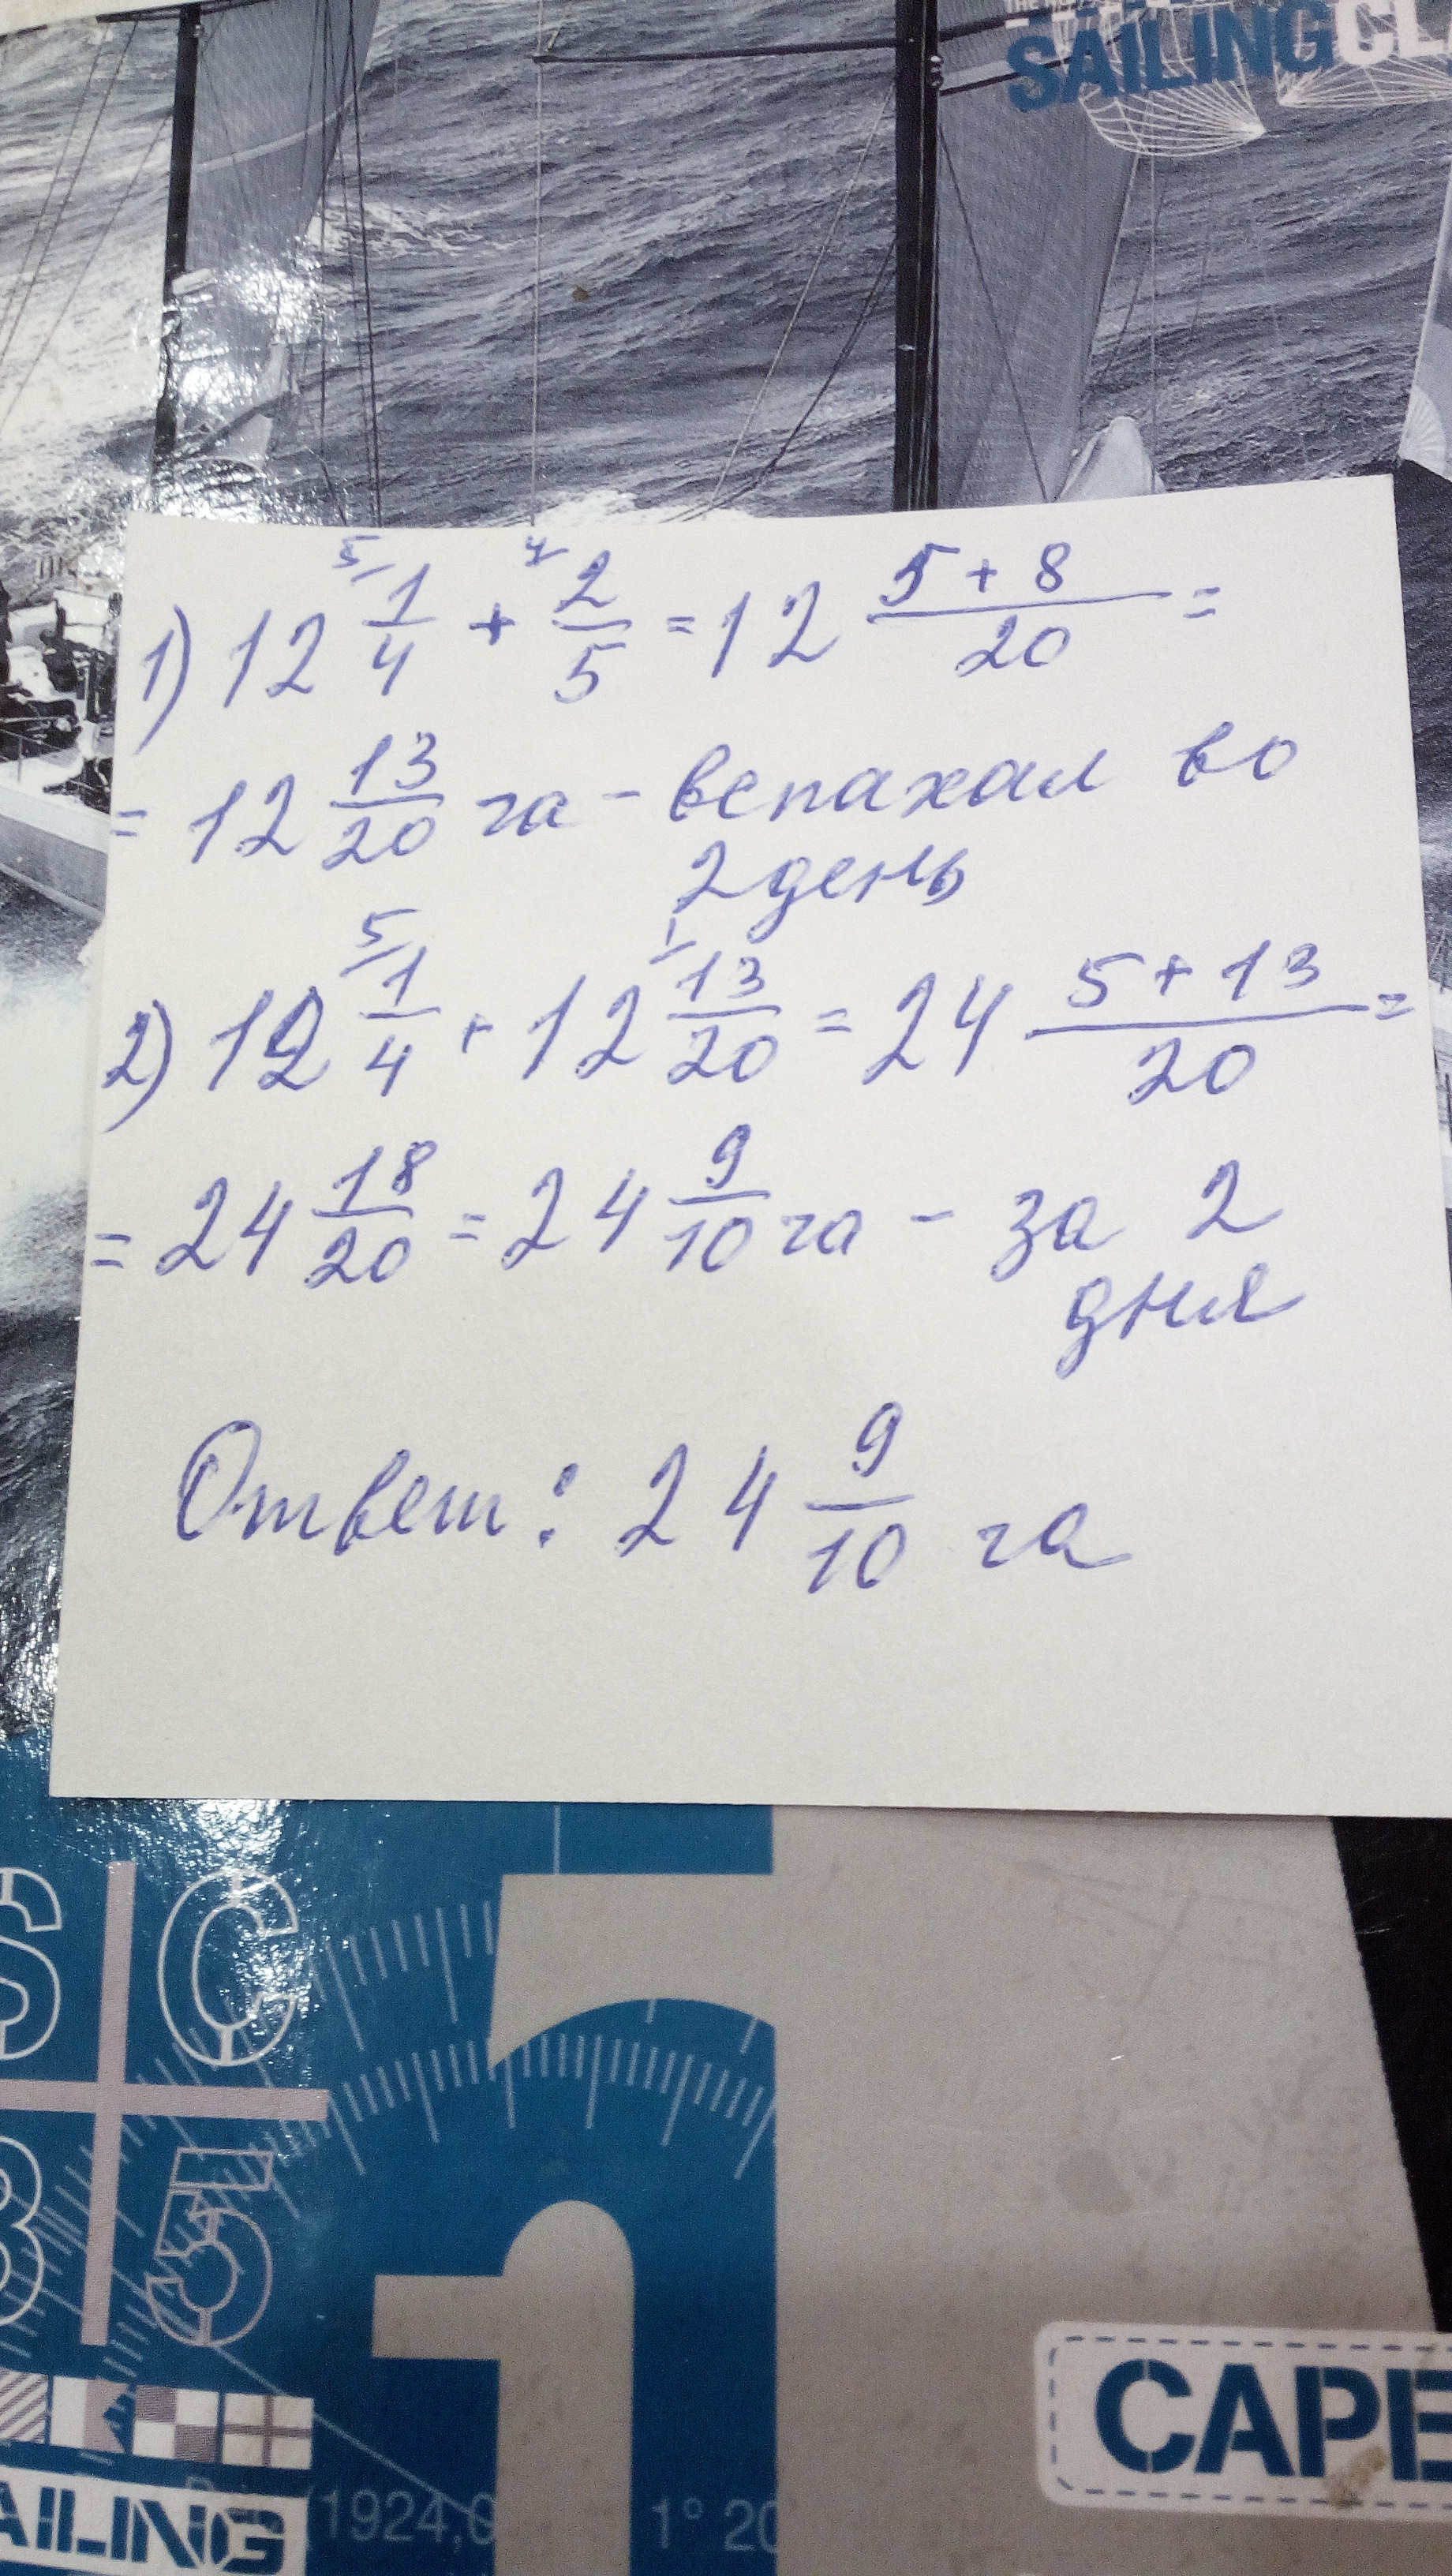 SAILING
1) 12 5/ 1/4 + 4/ 2/5 = 12 (5+8)/20 =
= 12 13/20 га - вспахал во
2 день
2) 12 5/ 1/4 + 12 1/ 13/20 = 24 (5+13)/20 =
= 24 18/20 = 24 9/10 га - за 2
дня
Ответ: 24 9/10 га
SC
35
CAPE
AILING
(1924,
1° 20